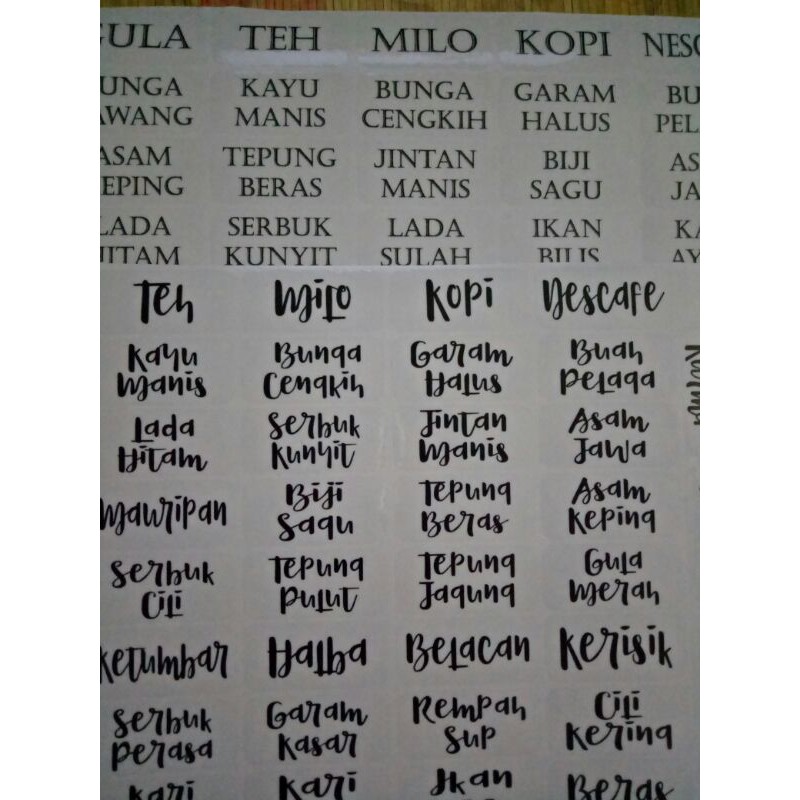 GULA TEH MILO KOPI NESC
UNGA KAYU BUNGA GARAM BU
AWANG MANIS CENGKIH HALUS PEL
ASAM TEPUNG JINTAN BIJI AS
EPING BERAS MANIS SAGU JA
LADA SERBUK LADA IKAN KA
HITAM KUNYIT SULAH BILIS AY
Teh Milo Kopi Nescafe
Kayu Bunga Garam Buah
Manis Cengkih Halus Pelaga
Lada Serbuk Jintan Asam
Hitam Kunyit Manis Jawa
Mauripan Biji Tepung Asam
Sagu Beras Keping
Serbuk Tepung Tepung Gula
Cili Pulut Jagung Merah
Ketumbar Halba Belacan Kerisik
Serbuk Garam Rempah Cili
Perasa Kasar Sup Kering
Kari Kari Ikan Beras